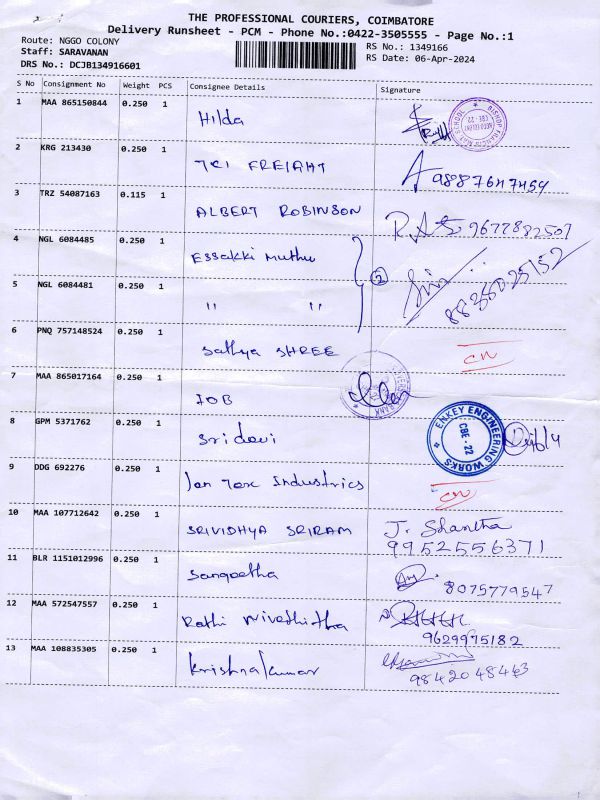 THE PROFESSIONAL COURIERS, COIMBATORE
Delivery Runsheet - PCM - Phone No.:0422-3505555 - Page No.:1
Route: NGGO COLONY
RS No.: 1349166
Staff: SARAVANAN
RS Date: 06-Apr-2024
DRS No.: DCJB134916601
S No Consignment No Weight PCS Consignee Details Signature
1 MAA 865150844 0.250 1 Hilda
2 KRG 213430 0.250 1 TCI FREIGHT
3 TRZ 54087163 0.115 1 ALBERT ROBINSON 9677882507
4 NGL 6084485 0.250 1 Essakki Muthu
2
5 NGL 6084481 0.250 1 " "
6 PNQ 757148524 0.250 1 Sathya SHREE CN
7 MAA 865017164 0.250 1 IOB
8 GPM 5371762 0.250 1 Sri devi
ENKEY ENGINEERING WORKS
CBE - 22
9 DDG 692276 0.250 1 Jan Tex Industries CN
10 MAA 107712642 0.250 1 SRIVIDHYA SRIRAM J. Shantha
9952556371
11 BLR 1151012996 0.250 1 Sangeetha 8075779547
12 MAA 572547557 0.250 1 Rathi Nivedhitha
9629975182
13 MAA 108835305 0.250 1 Krishnakumar
9842048463